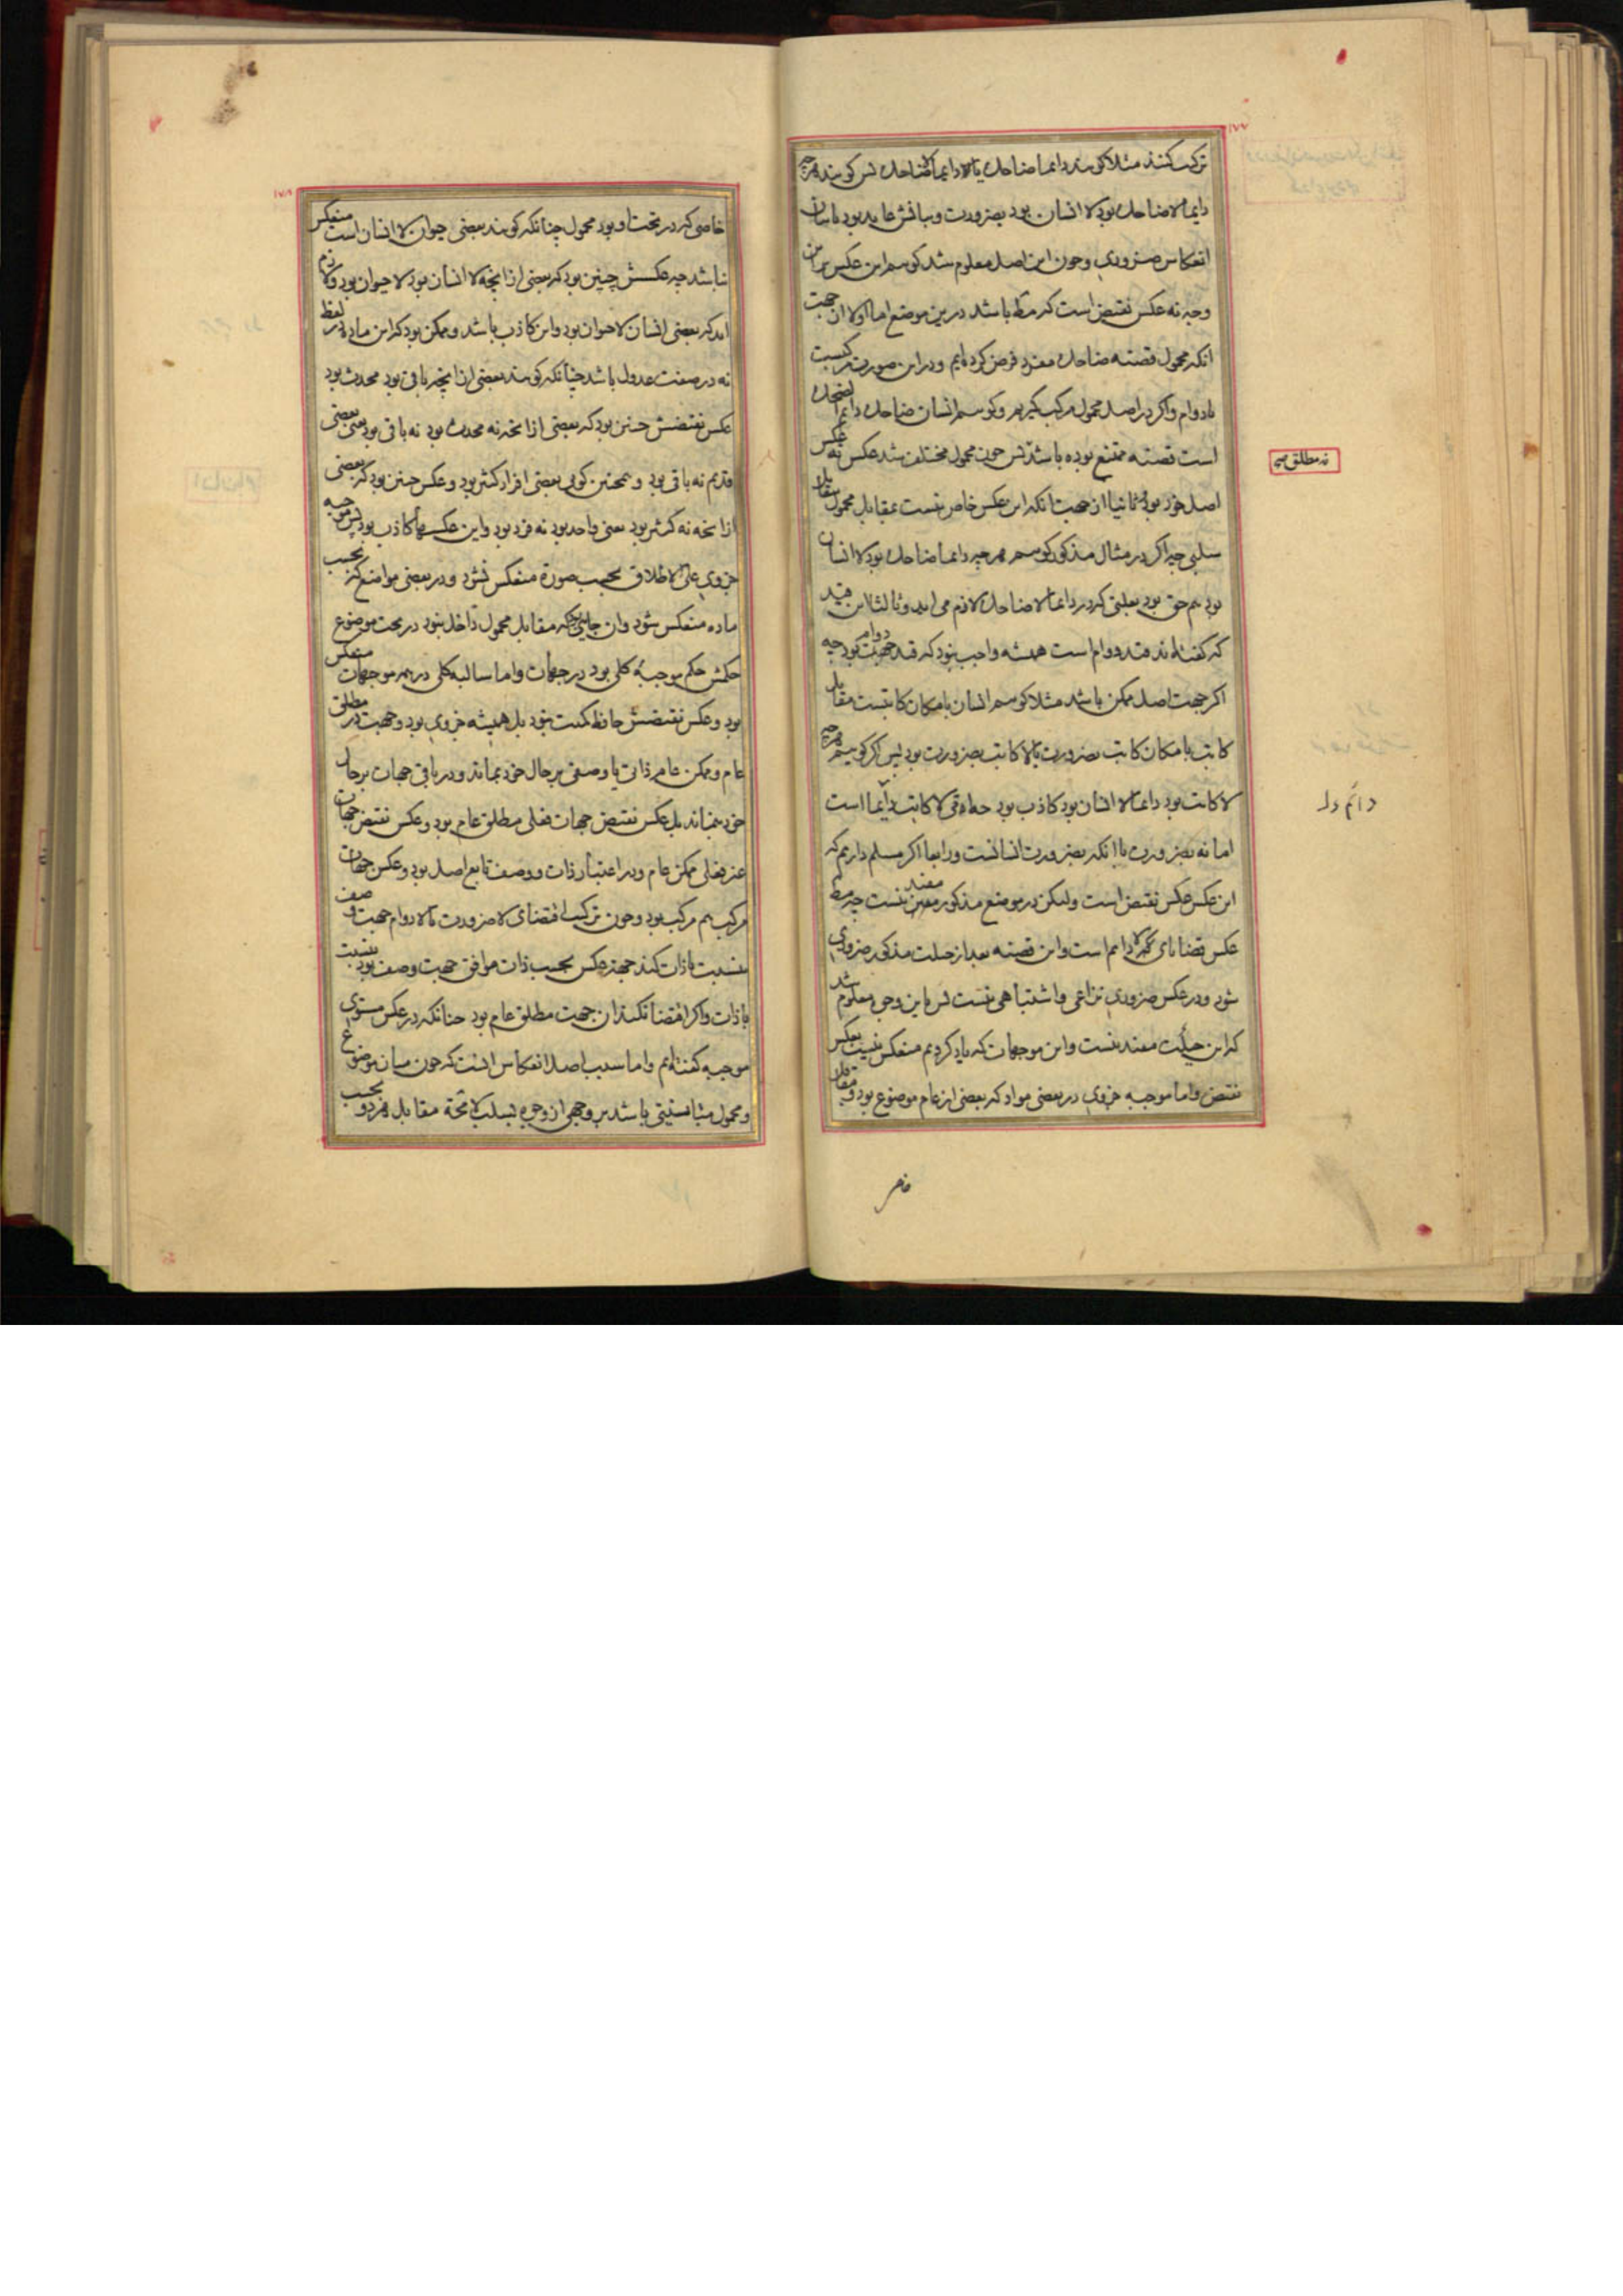 ۱۷۷
ترکیب کنند مثلا کویند دایما ضاحک یا لا دایما ضاحک پس کویند هرچه
دایما لا ضاحک بود لا انسان بود بضرورت و بیانش عاید بود با بیان
انعکاس ضروری و چون این اصل معلوم شد کوییم این عکس برین
وجه نه عکس نقیض است که مط باشد درین موضع اما اولا از جهت
انکه محمول قضیه ضاحک مفرد فرض کرده ایم و در این صورت مرکبست
با دوام و اکر در اصل محمول مرکب کیریم و کوییم انسان ضاحک دایم الضحک
است قضیه ممتنع بوده باشد پس چون محمول مختلف شد عکس نه عکس
اصل خود بود و ثانیا از جهت انکه این عکس خاص نیست بمقابل محمول مقابل
سلبی چه اکر در مثال مذکور کوییم هرچه دایما ضاحک بود لا انسان
بود هم حق بود بعلتی که در دایما لا ضاحک لازم می اید و ثالثا این قید
که کفته اند قید دوام است همیشه واجب نبود که قید دوام جهت بود چه
اکر جهت اصل ممکن باشد مثلا کوییم انسان بامکان کاتبست مقابل
کاتب بامکان کاتب بضرورت یا لا کاتب بضرورت بود پس اکر کوییم هرچه
لا کاتب بود دایما لا انسان بود کاذب بود چه امی لا کاتب دایما است
اما نه بضرورت با انکه بضرورت انسانست و رابعا اکر مسلم داریم که
این عکس عکس نقیض است ولیکن در موضع مذکور مفید نیست چه مط
عکس قضایای لا دایم است و این قضیه بعد از حیلت مذکور ضروری
شود و در عکس ضروری نزاعی و اشتباهی نیست پس باین وجه معلوم شد
که این حیلت مفید نیست و این موجهات که یاد کردیم منعکس نیست بعکس
نقیض و اما موجبه جزوی در بعضی مواد که بعضی از عام موضوع بود و مقابل
خاص
نه مطلق صح
دائم دل
۱۷۸
خاصی که در تحت او بود محمول چنانکه کویند بعضی حیوان لا انسان است منعکس
نباشد چه عکسش چنین بود که بعضی از انچه لا انسان بود لا حیوان بود و لازم
اید که بعضی انسان لا حیوان بود و این کاذب باشد و ممکن بود که این ماده در لفظ
نه در صفت عدول باشد چنانکه کویند بعضی از انچه باقی بود محدث بود
عکس نقیضش چنین بود که بعضی از انچه نه محدث بود نه باقی بود یعنی بعضی
قدیم نه باقی بود و همچنین کوی بعضی افراد کثیر بود و عکس چنین بود که بعضی
از انچه نه کثیر بود یعنی واحد بود نه فرد بود و این عکسها کاذب بود پس موجبه
جزوی علی الاطلاق بحسب صورة منعکس نشود و در بعضی مواضع که بحسب
ماده منعکس شود و ان جایی بود که مقابل محمول داخل نبود در تحت موضوع
حکمش حکم موجبه کلی بود در جهات و اما سالبه کلی در همه موجهات منعکس
بود و عکس نقیضش حافظ کمیت نبود بل همیشه جزوی بود و جهت در مطلق
عام و ممکن عام ذاتی یا وصفی بر حال خود بماند و در باقی جهات بر حال
خود بنماند بل عکس نقیض جهات فعلی مطلق عام بود و عکس نقیض جهات
غیر فعلی ممکن عام و در اعتبار ذات و وصف تابع اصل بود و عکس جهات
مرکب هم مرکب بود و چون ترکیب اقتضای لا ضرورت یا لا دوام جهت وصف
بنسبت با ذات کند جهة عکس بحسب ذات موافق جهت وصف بود بنسبت
با ذات و اکر اقتضا نکند ان جهت مطلق عام بود چنانکه در عکس مستوی
موجبه کفته ایم و اما سبب اصل انعکاس انست که چون میان موضوع
و محمول مباینتی باشد بر وجهی از وجوه لسلب لا محة مقابل هر دو بحسب